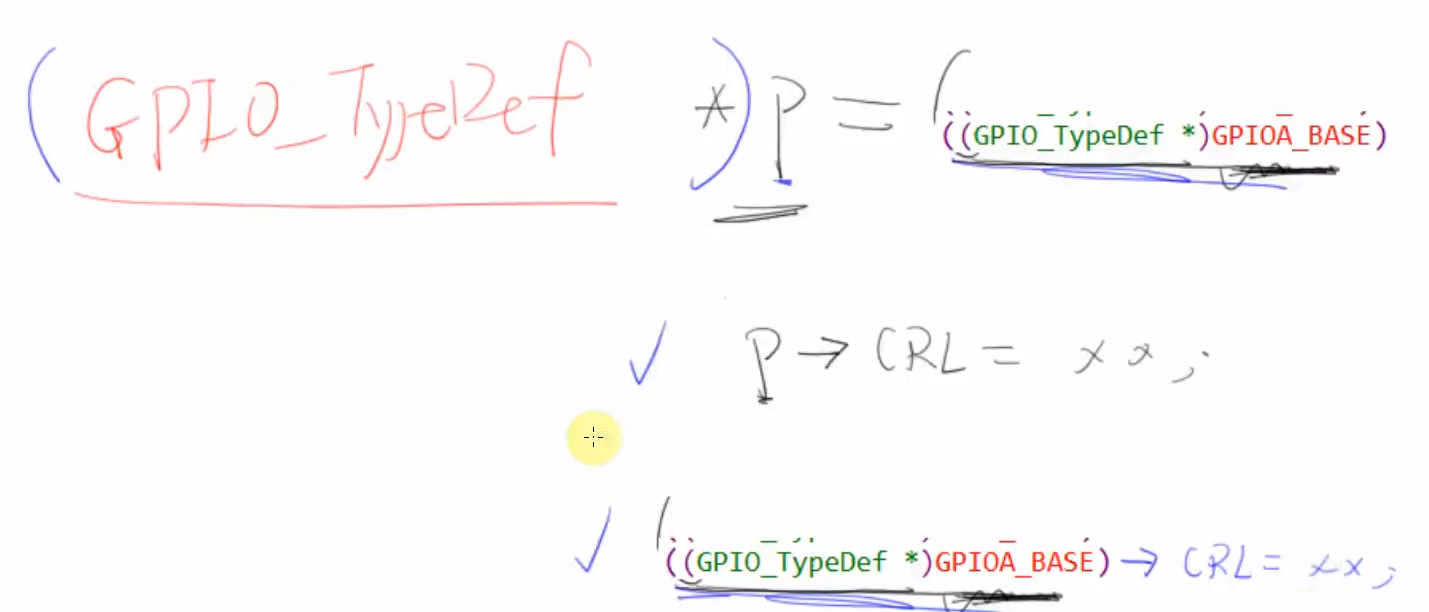 (GPIO_TypeDef *) P = ( ((GPIO_TypeDef *)GPIOA_BASE)
P → CRL = x x ;
( ((GPIO_TypeDef *)GPIOA_BASE) → CRL = x x ;